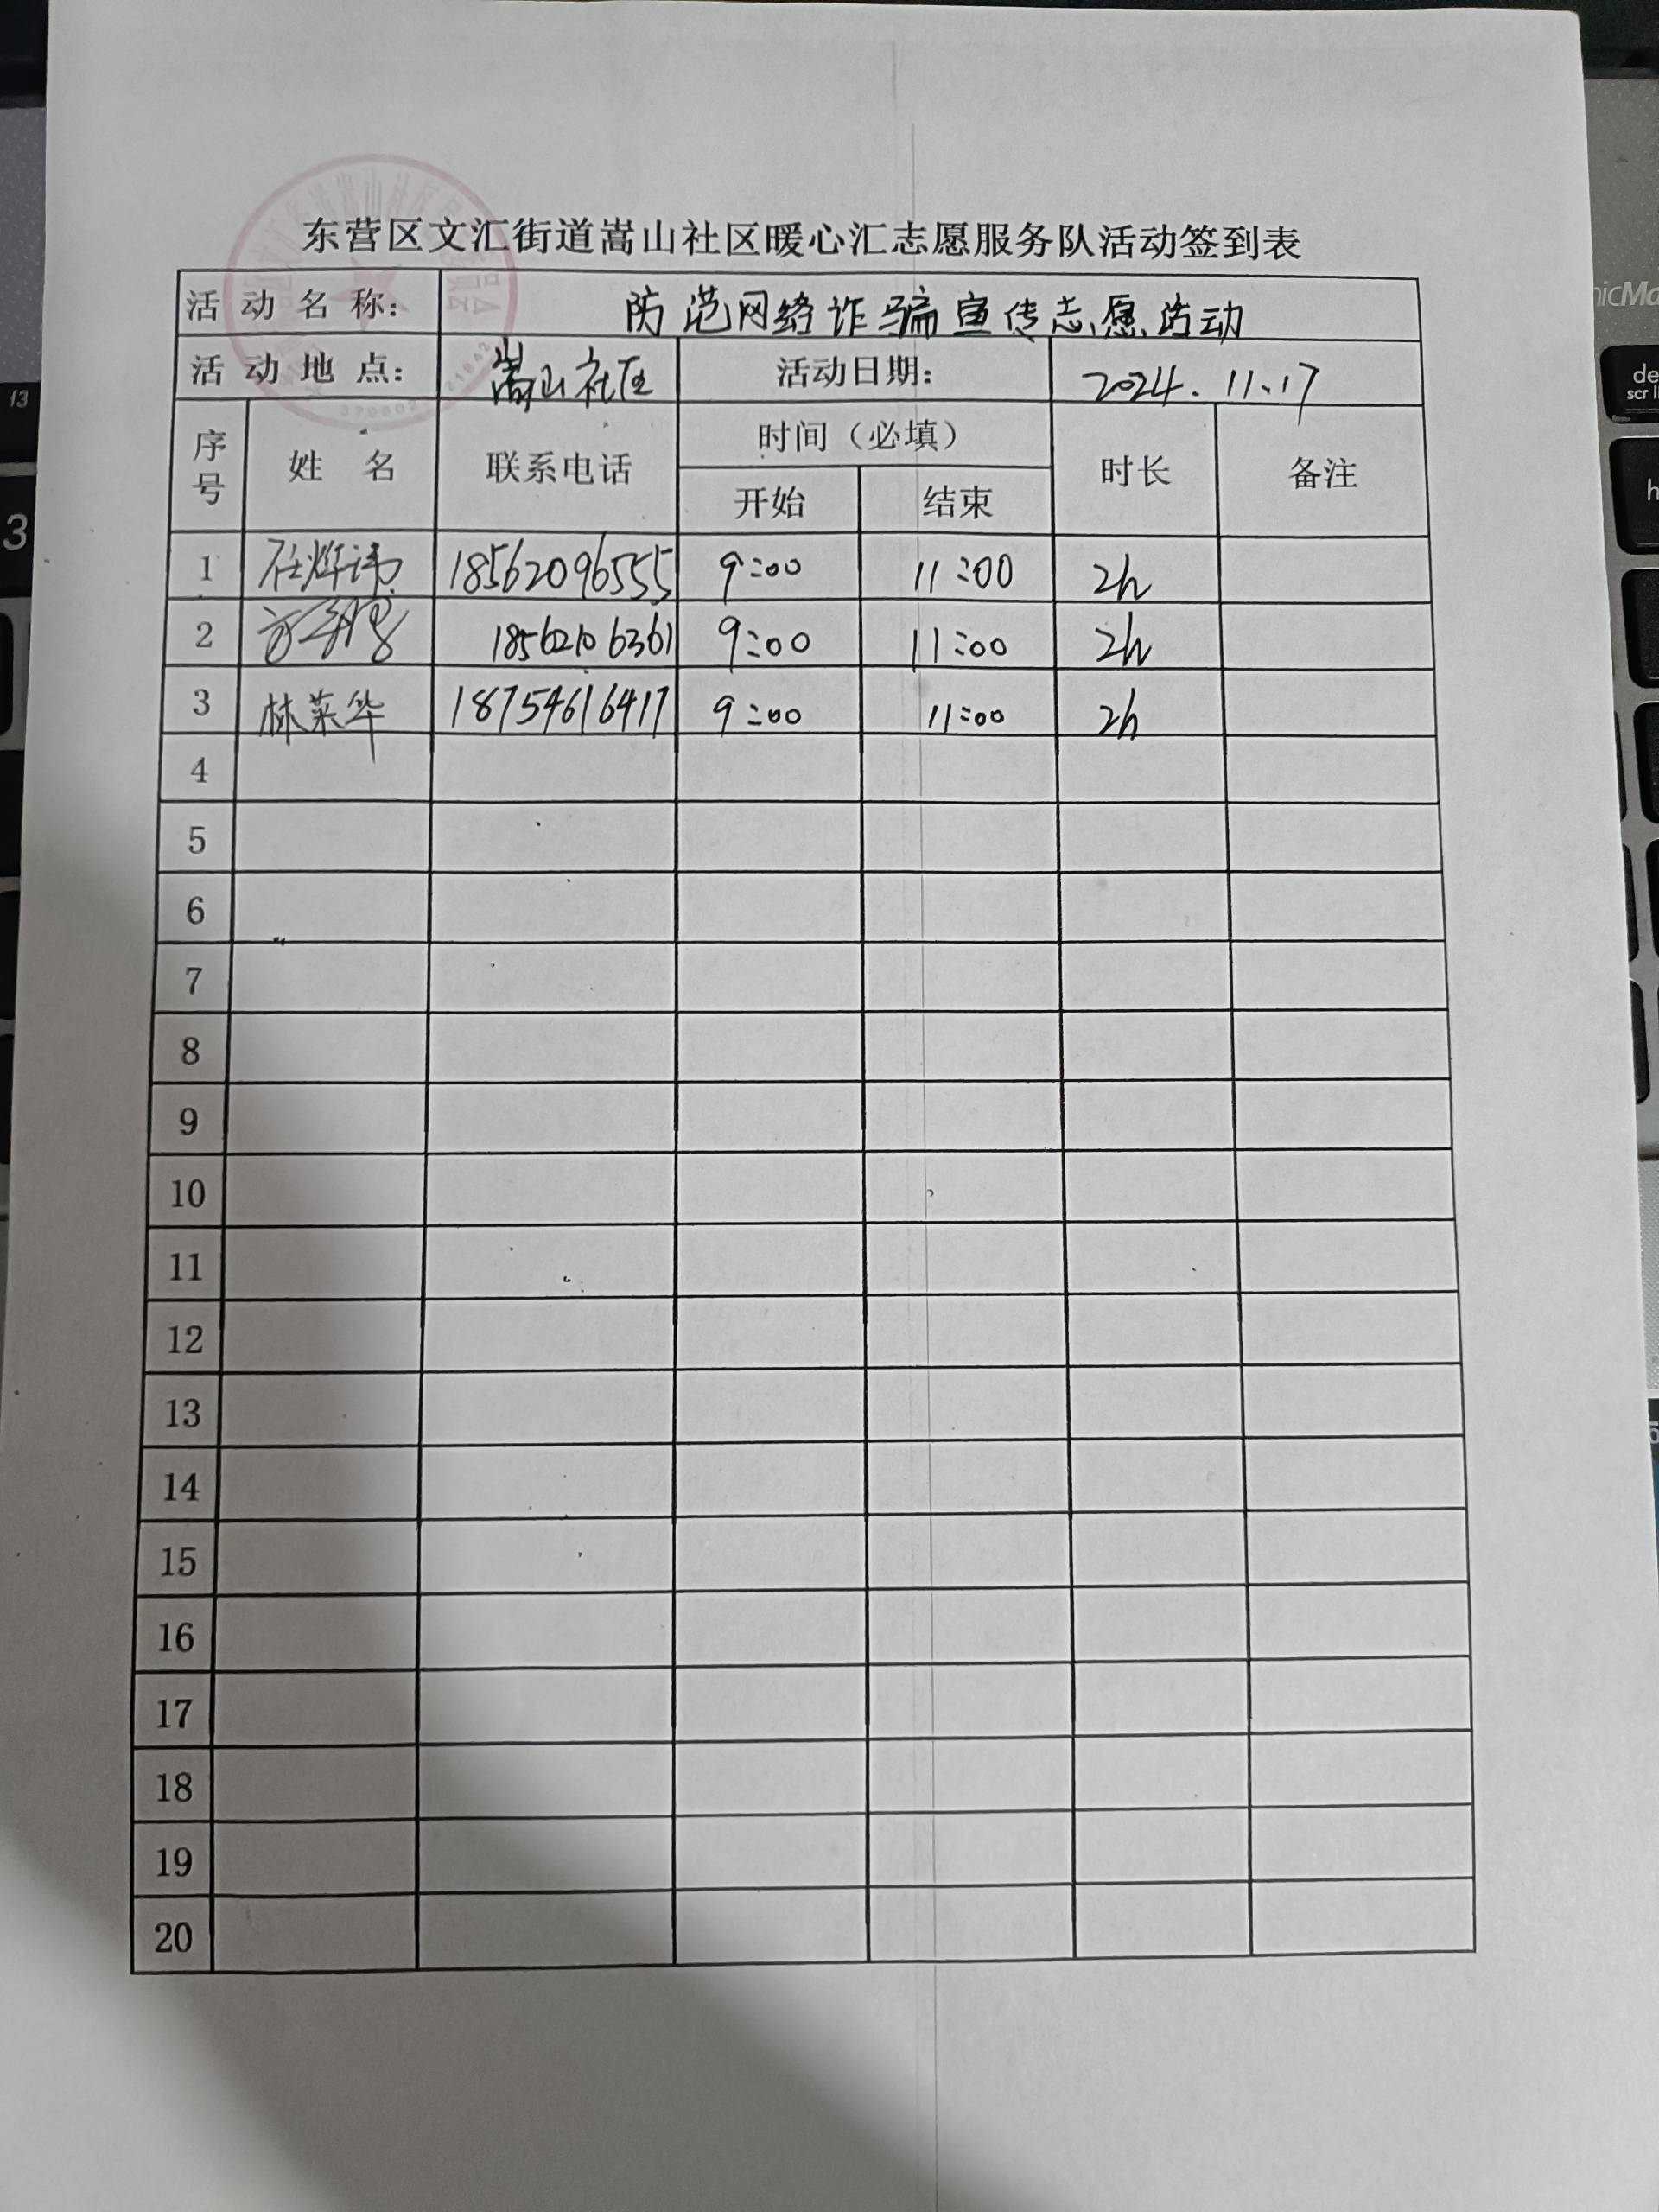 东营区文汇街道嵩山社区暖心汇志愿服务队活动签到表
活动名称： 防范网络诈骗宣传志愿活动
活动地点： 嵩山社区 活动日期： 2024.11.17
序号 姓名 联系电话 时间（必填） 时长 备注
开始 结束
1 任烨讳 18562096555 9:00 11:00 2h
2 18562106361 9:00 11:00 2h
3 林英华 18754616417 9:00 11:00 2h
4
5
6
7
8
9
10
11
12
13
14
15
16
17
18
19
20